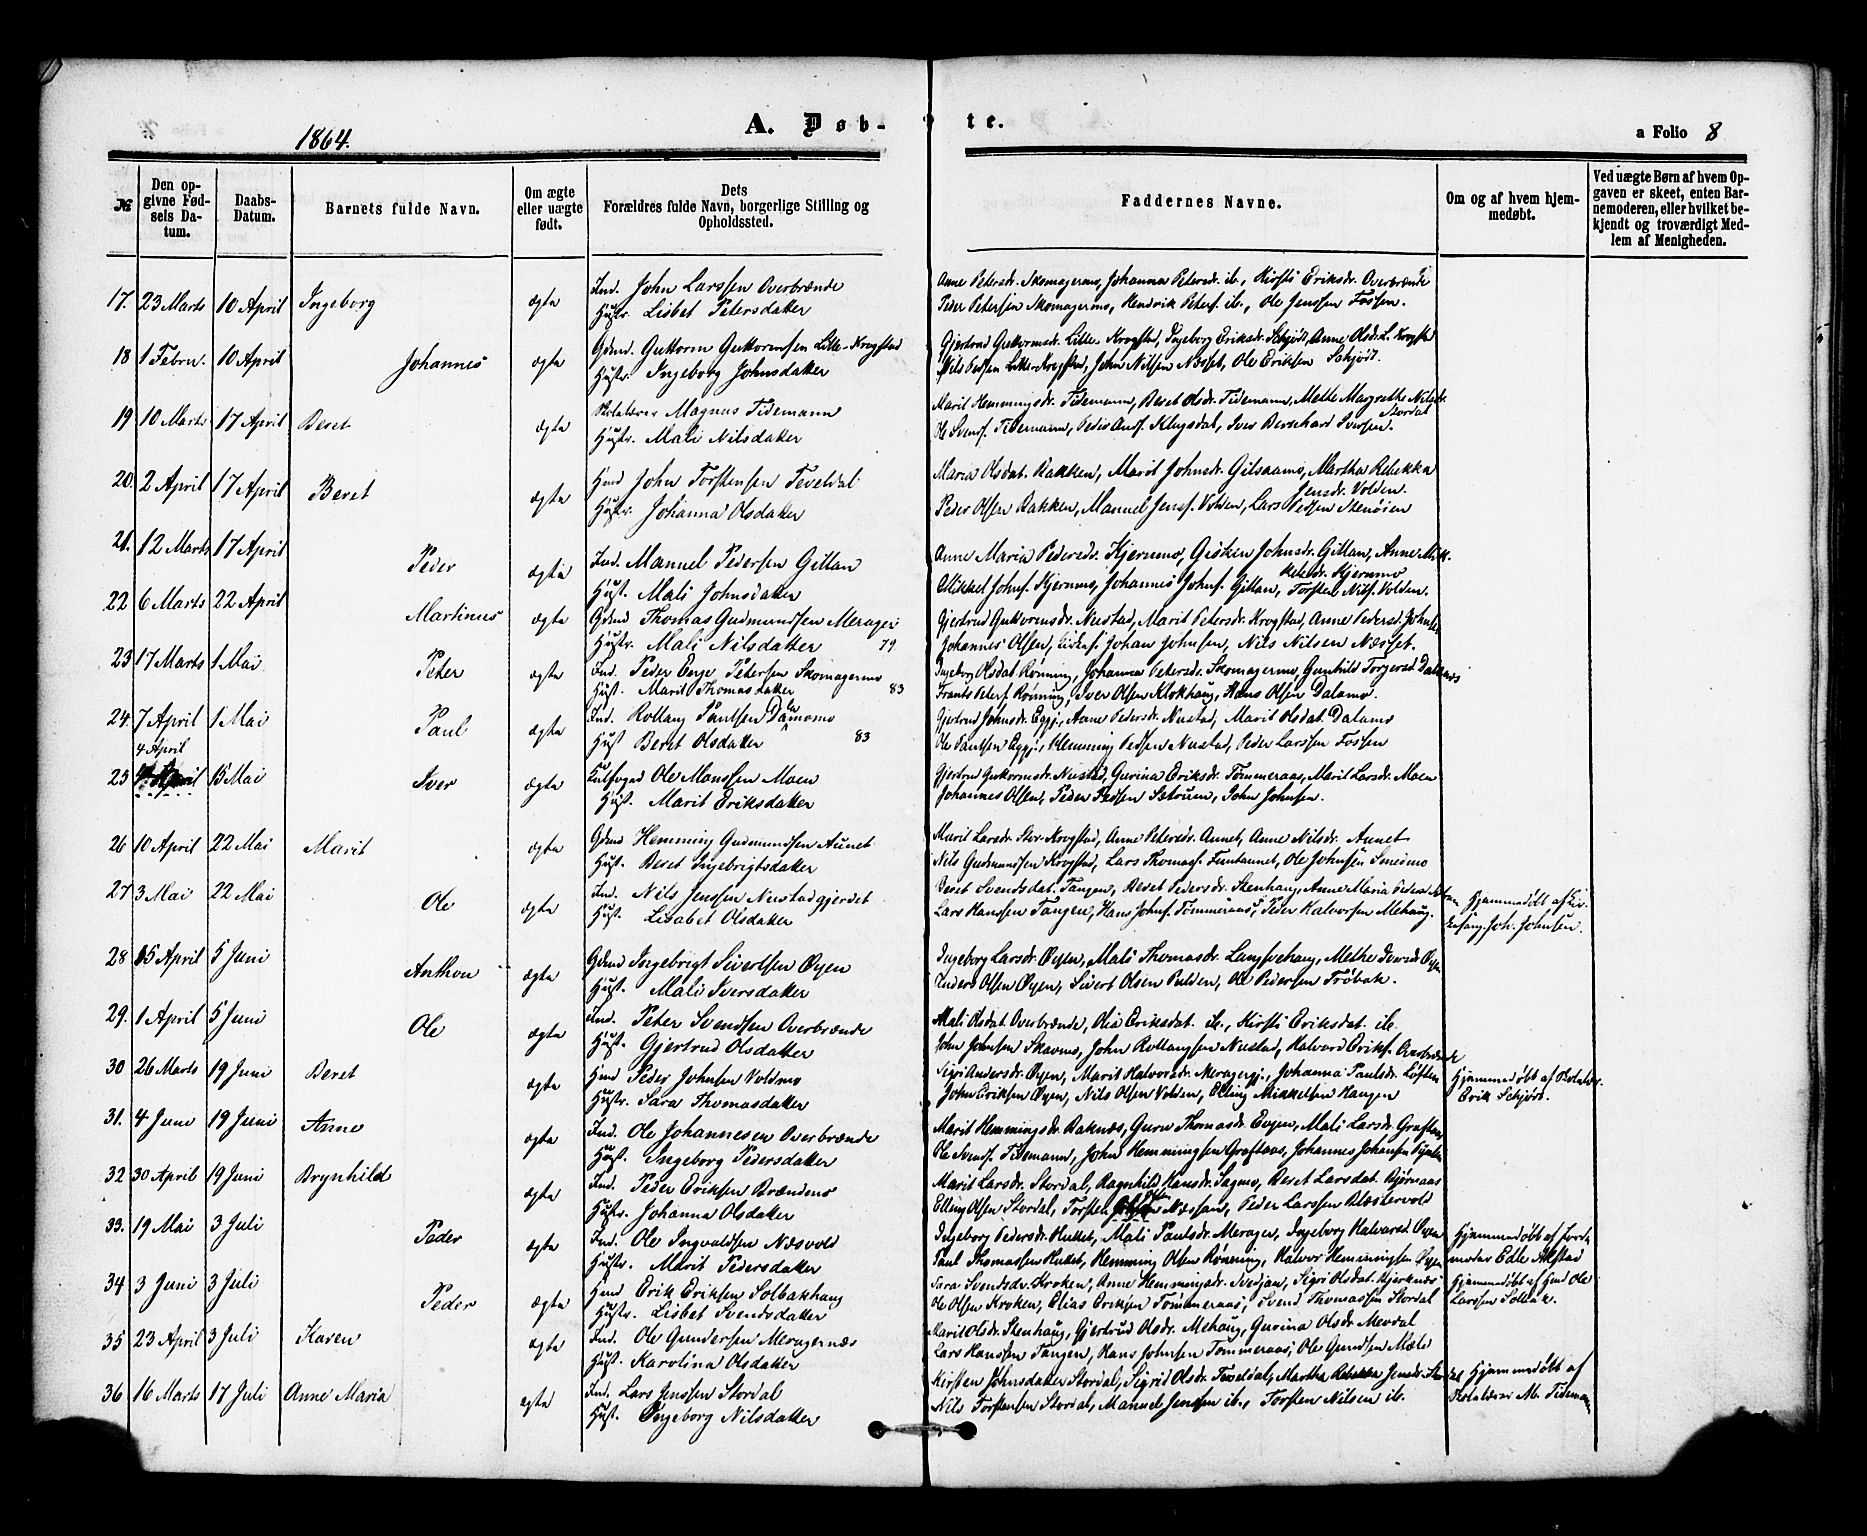 1864.
A. Døb-
te.
a Folio 8
№
Den opgivne Fødsels Datum.
Daabs-Datum.
Barnets fulde Navn.
Om ægte eller uægte født.
Dets Forældres fulde Navn, borgerlige Stilling og Opholdssted.
Faddernes Navne.
Om og af hvem hjemmedøbt.
Ved uægte Børn af hvem Opgaven er skeet, enten Barnemoderen, eller hvilket bekjendt og troværdigt Medlem af Menigheden.
17. 23 Marts 10 April Ingeborg ægte Ind. John Larssen Overbrænde
Hustr. Lisbet Petersdatter
Anne Petersdr. Skomagermo, Johanna Petersdr. ib., Kirsti Eriksdr. Overbrænde
Peder Petersen Skomagermo, Hendrik Peters. ib., Ole Jenssen Fossen.
18 1 Febru. 10 April Johannes ægte Gdmd Guttorm Guttormsen Lille-Krogstad
Hustr. Ingeborg Johnsdatter
Gjertrud Guttormsdr. Lille Krogstad, Ingeborg Eriksdr. Schjødt, Anne Olsdr. L. Krogsta
Nils Pedsen Lille Krogstad, John Nilsen Næsset, Ole Eriksen Schjødt.
19 10 Marts 17 April Beret ægte Skolelærer Magnus Tidemann
Hustr. Mali Nilsdatter
Marit Hemmingsdr. Tidemann, Beret Olsdr. Tidemann, Mette Margrethe Nilsdr. Stordal
Ol Svends. Tidemann, Peder Ands. Klugsdal, Iver Bernhard Iversen.
20. 2 April 17 April Beret ægte Hmd John Torstensen Teveldal
Hustr. Johanna Olsdatter
Maria Olsdat. Bakken, Marit Johnsdr. Gilsaamo, Martha Rebekka Jensdr. Volden.
Peder Olsen Bakken, Manuel Jens. Volden, Lars Pedsen Stenøien
21. 12 Marts 17 April Peder ægte Ind. Manuel Pedersen Gillan
Hust. Mali Johnsdatter
Anne Maria Pedersdr. Kjernmo, Gisken Johnsdr. Gillan, Anne Mik-
kelsdr. Kjernmo
Mikkel Johns. Kjernmo, Johannes Johns. Gillan, Torsten Nils. Volden.
22 6 Marts 22 April Martinus ægte Gdmd Thomas Gudmundsen Merager
Hustr. Mali Nilsdatter 79
Gjertrud Guttormsdr. Nustad, Marit Petersdr. Krogstad, Anne Pedersd. Johnsen
Johannes Olsen, Johan Johnsen, Nils Nilsen Næsset.
23 17 Marts 1 Mai Peter ægte Ind. Peder Enge Petersen Skomagermo
Hust. Marit Thomasdatter 83
Ingeborg Olsdat Rønning, Johanna Petersdr. Skomagermo, Gunhild Torgersd. Dalamo
Frants Peters. Rønning, Iver Olsen Klokhaug, Hans Olsen Dalamo.
24. 7 April 1 Mai Paul ægte Ind. Rollaug Paulsen Dalamo
Hust Beret Olsdatter 83
Gjertrud Johnsdr. Eggj., Anne Pedersdr. Nustad, Marit Olsdat. Dalamo
Ole Paulsen Eggj., Hemming Pedsen Nustad, Peder Larssen Fossen
25 4 April 15 Mai Iver ægte Kulfoged Ole Monssen Moen
Hust. Marit Eriksdatter
Gjertru Guttormsdr. Nustad, Gurina Eriksdr. Tømmeraas, Marit Larsdr. Moen
Johannes Olsen, Peder Pedsen Sætrum, John Johnsen.
26 10 April 22 Mai Marit ægte Gdmd Hemming Gudmundsen Aunet
Hust. Beret Ingebrigtsdatter
Marit Larsdr. Stor-Krogstad, Anne Petersdr. Aunet, Anne Nilsdr. Aunet
Nils Gudmundsen Krogstad, Lars Thomass. Funtaunet, Ole Johnsen Smedmo
27 3 Mai 22 Mai Ole ægte Ind. Nils Jenssen Nustadgjerdet
Hust. Lisabet Olsdatter
Beret Svendsdat. Tangen, Beret Pedersdr. Stenhaug, Anne Maria Peders Sætran
Lars Hanssen Tangen, Hans Johns. Tømmeraas, Peder Halvorsen Mehaug.
Hjemmedøbt af Kir-
kesang. Joh. Johnsen.
28 15 April 5 Juni Anthon ægte Gdmd Ingebrigt Sivertsen Øyen
Hust. Mali Iversdatter
Ingeborg Larsdr. Øyen, Mali Thomasdr. Langsvehaug, Methe Iversdr Øyen
Anders Olsen Øyen, Sivert Olsen Pulden, Ole Pedersen Trøbak.
29. 1 April 5 Juni Ole ægte Ind. Peter Svendsen Overbrænde
Hust. Gjertrud Olsdatter
Mali Olsdat Overbrænde, Olia Eriksdat. ib., Kirsti Eriksdat. ib.
John Johnsen Skavmo, John Rollaugsen Nustad, Halvard Eriks. Overbrænde
30 26 Marts 19 Juni Beret ægte Hmd Peder Johnsen Voldmo
Hustr. Sara Thomasdatter
Sigri Andersdr. Øyen, Marit Halvorsdr. Meragergj., Johanna Paulsdr. Løften
John Eriksen Øyen, Nils Olsen Volden, Elling Mikkelsen Haugen
Hjemmedøbt af Skolelær.
Erik Schjødt.
31. 4 Juni 19 Juni Anne ægte Ind. Ole Johannesen Overbrænde
Hust. Ingeborg Pedersdatter
Marit Hemmingsdr. Raknæs, Guru Thomasdr. Evjen, Mali Larsdr. Graftaas
Ole Svends. Tidemann, John Hemmingsen Graftaas, Johannes Johansen
32 30 April 19 Juni Brynhild ægte Ind. Peder Eriksen Brændmo
Hustr. Johanna Olsdatter
Marit Larsdr. Stordal, Ragnhild Hansdr. Sagmo, Beret Larsdat. Bjørnaas
Elling Olsen Stordal, Torsten Næssan, Peder Larssen Blæstervold
33. 19 Mai 3 Juli Peder ægte Ind. Ole Ingvaldsen Næsvold
Hustr. Marit Pedersdatter
Ingeborg Pedersdr. Hullet, Mali Paulsdr. Merager, Ingeborg Halvorsd. Øyen
Paul Thomassen Hullet, Hemming Olsen Rønning, Halvor Hemmingsen Øyen
Hjemmedøbt af Jorde-
moder Edle Alstad
34 3 Juni 3 Juli Peder ægte Hmd Erik Eriksen Solbakhaug
Hustr. Lisbet Svendsdatter
Sara Svendsdr. Kroken, Anne Hemmingsdr. Svedjan, Sigri Olsdat. Bjerknæs
Ole Olsen Kroken, Elias Eriksen Tømmeraas, Svend Thomassen Stordal
Hjemmedøbt af Hmd Ole
Larssen Solbak.
35 23 April 3 Juli Karen ægte Ind. Ole Gundersen Meragernæs
Hust. Karolina Olsdatter
Marit Olsdr. Stenhaug, Gjertrud Olsdr. Mehaug, Gurina Olsdr. Mevdal
Lars Hanssen Tangen, Hans Johnsen Tømmeraas, Ole Gundsen Mæle
36 16 Marts 17 Juli Anne Maria ægte Ind. Lars Jenssen Stordal
Hust. Ingeborg Nilsdatter
Kirsten Johnsdatter Stordal, Sigrid Olsdr. Teveldal, Martha Rebekka Jensdr. Stordal
Nils Torstensen Stordal, Manuel Jenssen ib., Torsten Nilsen ib.
Hjemmedøbt af
Skolelærer M. Tidemann